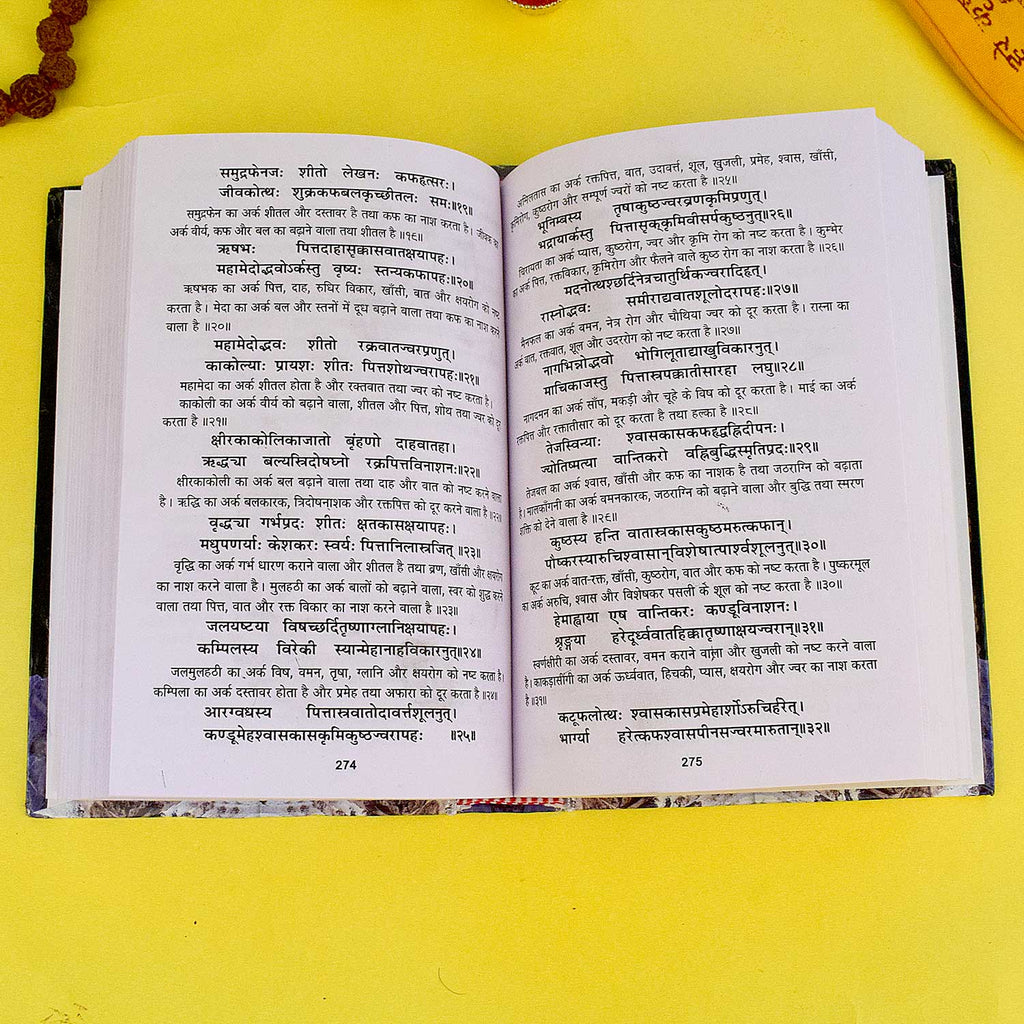 समुद्रफेनजः शीतो लेखनः कफहृत्सरः।
जीवकोत्थः शुक्रकफबलकृच्छीतलः समः॥१९॥
समुद्रफेन का अर्क शीतल और दस्तावर है तथा कफ का नाश करता है। जीवक का
अर्क वीर्य, कफ और बल का बढ़ाने वाला तथा शीतल है ॥१९॥
ऋषभः पित्तदाहासृक्कासवातक्षयापहः।
महामेदोद्भवोऽर्कस्तु वृष्यः स्तन्यकफापहः॥२०॥
ऋषभक का अर्क पित्त, दाह, रुधिर विकार, खाँसी, वात और क्षयरोग को नष्ट
करता है। मेदा का अर्क बल और स्तनों में दूध बढ़ाने वाला तथा कफ का नाश करने
वाला है ॥२०॥
महामेदोद्भवः शीतो रक्तवातज्वरप्रणुत्।
काकोल्याः प्रायशः शीतः पित्तशोथज्वरापहः॥२१॥
महामेदा का अर्क शीतल होता है और रक्तवात तथा ज्वर को नष्ट करता है।
काकोली का अर्क वीर्य को बढ़ाने वाला, शीतल और पित्त, शोथ तथा ज्वर को दूर
करता है ॥२१॥
क्षीरकाकोलिकाजातो बृंहणो दाहवातहा।
ऋद्ध्या बल्यस्त्रिदोषघ्नो रक्तपित्तविनाशनः॥२२॥
क्षीरकाकोली का अर्क बल बढ़ाने वाला तथा दाह और वात को नष्ट करने वाला
है। ऋद्धि का अर्क बलकारक, त्रिदोषनाशक और रक्तपित्त को दूर करने वाला है ॥२२॥
वृद्ध्या गर्भप्रदः शीतः क्षतकासक्षयापहः।
मधुपणर्याः केशकरः स्वर्यः पित्तानिलास्रजित् ॥२३॥
वृद्धि का अर्क गर्भ धारण कराने वाला और शीतल है तथा व्रण, खाँसी और क्षयरोग
का नाश करने वाला है। मुलहठी का अर्क बालों को बढ़ाने वाला, स्वर को शुद्ध करने
वाला तथा पित्त, वात और रक्त विकार का नाश करने वाला है ॥२३॥
जलयष्टया विषच्छर्दितृष्णाग्लानिक्षयापहः।
कम्पिलस्य विरेकी स्यान्मेहानाहविकारनुत्॥२४॥
जलमुलहठी का अर्क विष, वमन, तृषा, ग्लानि और क्षयरोग को नष्ट करता है।
कम्पिला का अर्क दस्तावर होता है और प्रमेह तथा अफारा को दूर करता है ॥२४॥
आरग्वधस्य पित्तास्रवातोदावर्त्तशूलनुत्।
कण्डूमेहश्वासकासकृमिकुष्ठज्वरापहः ॥२५॥
274
अमिलतास का अर्क रक्तपित्त, वात, उदावर्त्त, शूल, खुजली, प्रमेह, श्वास, खाँसी,
कृमिरोग, कुष्ठरोग और सम्पूर्ण ज्वरों को नष्ट करता है ॥२५॥
भूनिम्बस्य तृषाकुष्ठज्वरव्रणकृमिप्रणुत्।
भद्रायार्कस्तु पित्तासृक्कृमिवीसर्पकुष्ठनुत्॥२६॥
चिरायता का अर्क प्यास, कुष्ठरोग, ज्वर और कृमि रोग को नष्ट करता है। कुम्भेर
का अर्क पित्त, रक्तविकार, कृमिरोग और फैलने वाले कुष्ठ रोग का नाश करता है ॥२६॥
मदनोत्थश्छर्दिनेत्रचातुर्थिकज्वरादिहृत्।
रास्नोद्भवः समीराद्यवातशूलोदरापहः॥२७॥
मैनफल का अर्क वमन, नेत्र रोग और चौथिया ज्वर को दूर करता है। रास्ना का
अर्क वात, रक्तवात, शूल और उदररोग को नष्ट करता है ॥२७॥
नागभिन्नोद्भवो भोगिलूताद्याखुविकारनुत्।
माचिकाजस्तु पित्तास्रपक्कातीसारहा लघु॥२८॥
नागदमन का अर्क साँप, मकड़ी और चूहे के विष को दूर करता है। माई का अर्क
रक्तपित्त और रक्तातीसार को दूर करता है तथा हल्का है ॥२८॥
तेजस्विन्याः श्वासकासकफहृद्वह्निदीपनः।
ज्योतिष्मत्या वान्तिकरो वह्निबुद्धिस्मृतिप्रदः॥२९॥
तेजबल का अर्क श्वास, खाँसी और कफ का नाशक है तथा जठराग्नि को बढ़ाता
है। मालकाँगनी का अर्क वमनकारक, जठराग्नि को बढ़ाने वाला और बुद्धि तथा स्मरण
शक्ति को देने वाला है ॥२९॥
कुष्ठस्य हन्ति वातास्रकासकुष्ठमरुत्कफान्।
पौष्करस्यारुचिश्वासान्विशेषात्पार्श्वशूलनुत्॥३०॥
कूट का अर्क वात-रक्त, खाँसी, कुष्ठरोग, वात और कफ को नष्ट करता है। पुष्करमूल
का अर्क अरुचि, श्वास और विशेषकर पसली के शूल को नष्ट करता है ॥३०॥
हेमाह्वाया एष वान्तिकरः कण्डूविनाशनः।
श्रृङ्गया हरेदूर्ध्ववातहिक्कातृष्णाक्षयज्वरान्॥३१॥
स्वर्णक्षीरी का अर्क दस्तावर, वमन कराने वाला और खुजली को नष्ट करने वाला
है। काकड़ासींगी का अर्क ऊर्ध्ववात, हिचकी, प्यास, क्षयरोग और ज्वर का नाश करता
है ॥३१॥
कटूफलोत्थः श्वासकासप्रमेहार्शोऽरुचिर्हरेत्।
भार्ग्या हरेत्कफश्वासपीनसज्वरमारुतान्॥३२॥
275